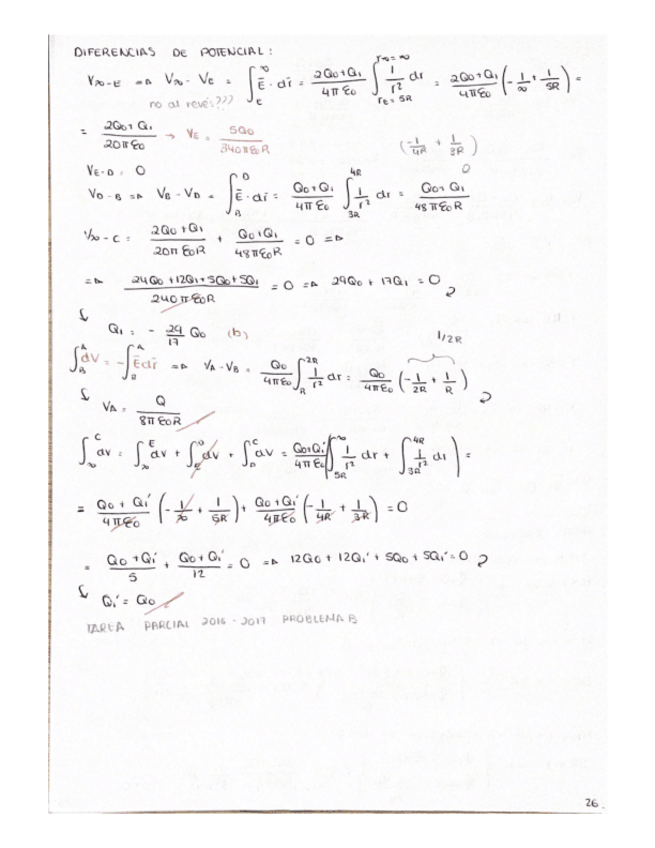 DIFERENCIAS DE POTENCIAL:
V∞-E => V∞ - VE = ∫_E^∞ Ē · dr̄ = (2Q0+Q1)/(4πε0) ∫_{rE=5R}^{r∞=∞} 1/r² dr = (2Q0+Q1)/(4πε0) (-1/∞ + 1/5R) =
no al revés???
= (2Q0+Q1)/(20πε0) → VE = 5Q0/(340πε0R) (-1/4R + 1/3R)
VE-D = 0
VD-B => VB - VD = ∫_B^D Ē · dr̄ = (Q0+Q1)/(4πε0) ∫_{3R}^{4R} 1/r² dr = (Q0+Q1)/(48πε0R)
V∞-C = (2Q0+Q1)/(20πε0R) + (Q0+Q1)/(48πε0R) = 0 =>
=> (24Q0+12Q1+5Q0+5Q1)/(240πε0R) = 0 => 29Q0 + 17Q1 = 0
Q1 = - 29/17 Q0 (b)
∫_B^A dV = -∫_B^A Ēdr̄ => VA - VB = Q0/(4πε0) ∫_R^{2R} 1/r² dr = Q0/(4πε0) (-1/2R + 1/R) 1/2R
VA = Q/(8πε0R)
∫_∞^C dV = ∫_∞^E dV + ∫_E^D dV + ∫_D^C dV = (Q0+Q1')/(4πε0) (∫_{5R}^∞ 1/r² dr + ∫_{3R}^{4R} 1/r² dr) =
= (Q0+Q1')/(4πε0) (-1/∞ + 1/5R) + (Q0+Q1')/(4πε0) (-1/4R + 1/3R) = 0
= (Q0+Q1')/5 + (Q0+Q1')/12 = 0 => 12Q0 + 12Q1' + 5Q0 + 5Q1' = 0
Q1' = Q0
TAREA PARCIAL 2016-2017 PROBLEMA B
26